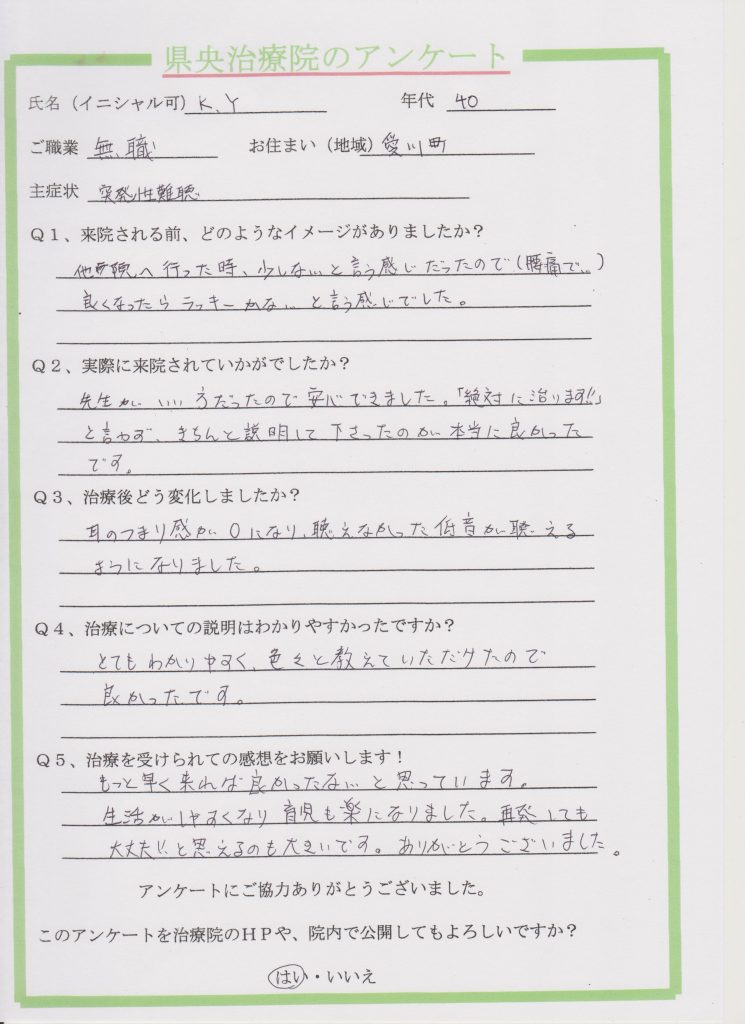 県央治療院のアンケート
氏名（イニシャル可） K、Y 年代 40
ご職業 無職 お住まい（地域） 愛川町
主症状 突発性難聴
Ｑ１、来院される前、どのようなイメージがありましたか？
他の院へ行った時、少しな…と言う感じだったので（腰痛で…）
良くなったらラッキーかな…と言う感じでした。
Ｑ２、実際に来院されていかがでしたか？
先生がいい方だったので安心できました。「絶対に治ります!!」
と言わず、きちんと説明して下さったのが本当に良かった
です。
Ｑ３、治療後どう変化しましたか？
耳のつまり感が０になり、聴えなかった低音が聴える
ようになりました。
Ｑ４、治療についての説明はわかりやすかったですか？
とてもわかりやすく、色々と教えていただけたので
良かったです。
Ｑ５、治療を受けられての感想をお願いします！
もっと早く来れば良かったな…と思っています。
生活がしやすくなり育児も楽になりました。再発しても
大丈夫!!と思えるのも大きいです。ありがとうございました。
アンケートにご協力ありがとうございました。
このアンケートを治療院のＨＰや、院内で公開してもよろしいですか？
はい・いいえ